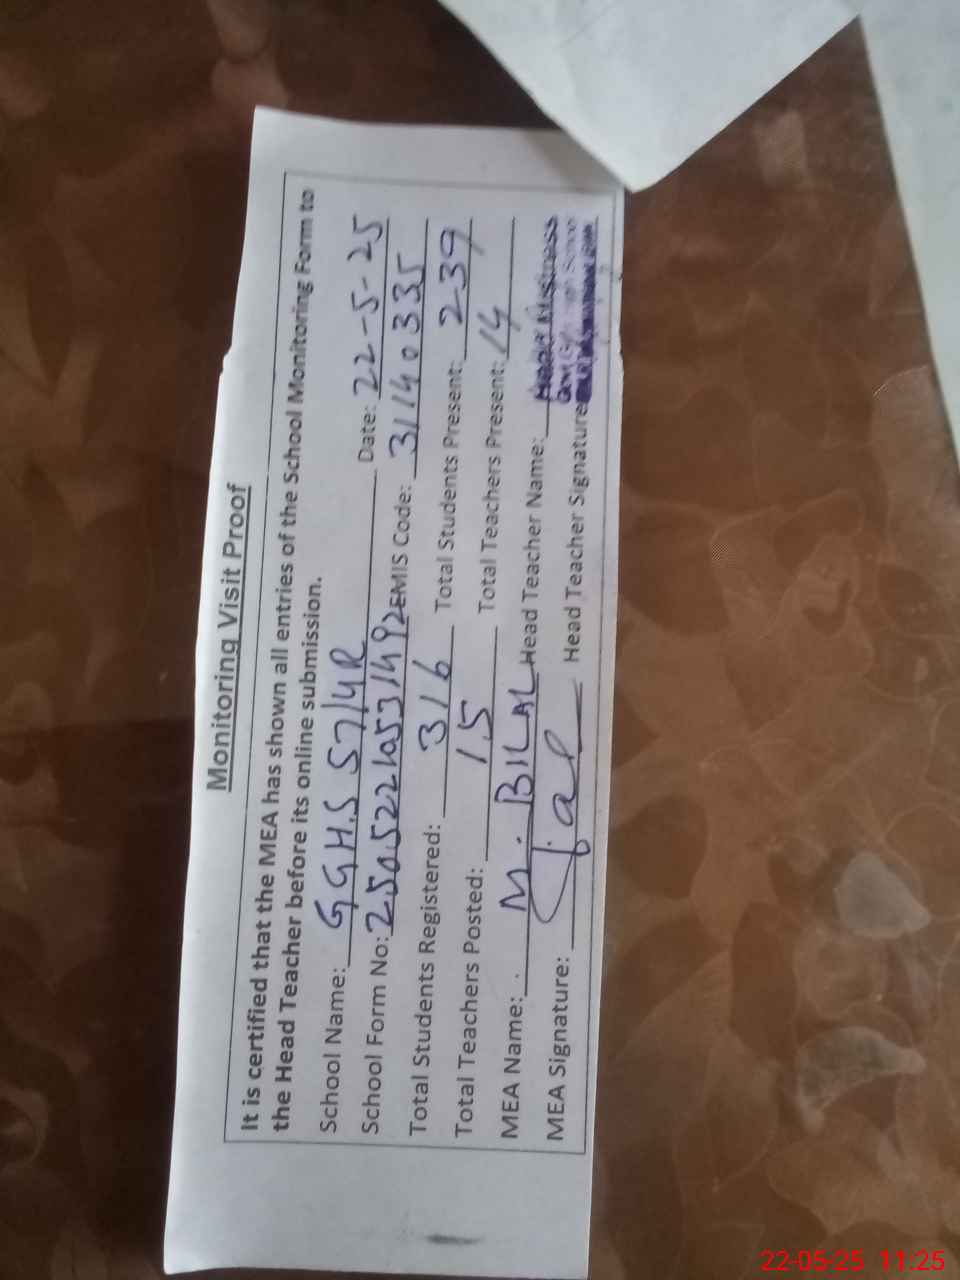 Monitoring Visit Proof
It is certified that the MEA has shown all entries of the School Monitoring Form to
the Head Teacher before its online submission.
School Name: GGHS 57/4R Date: 22-5-25
School Form No: 25052210531492 EMIS Code: 31140335
Total Students Registered: 316 Total Students Present: 239
Total Teachers Posted: 15 Total Teachers Present: 14
MEA Name: M. BILAL Head Teacher Name: Head Mistress
MEA Signature: Head Teacher Signature
22-05-25 11:25